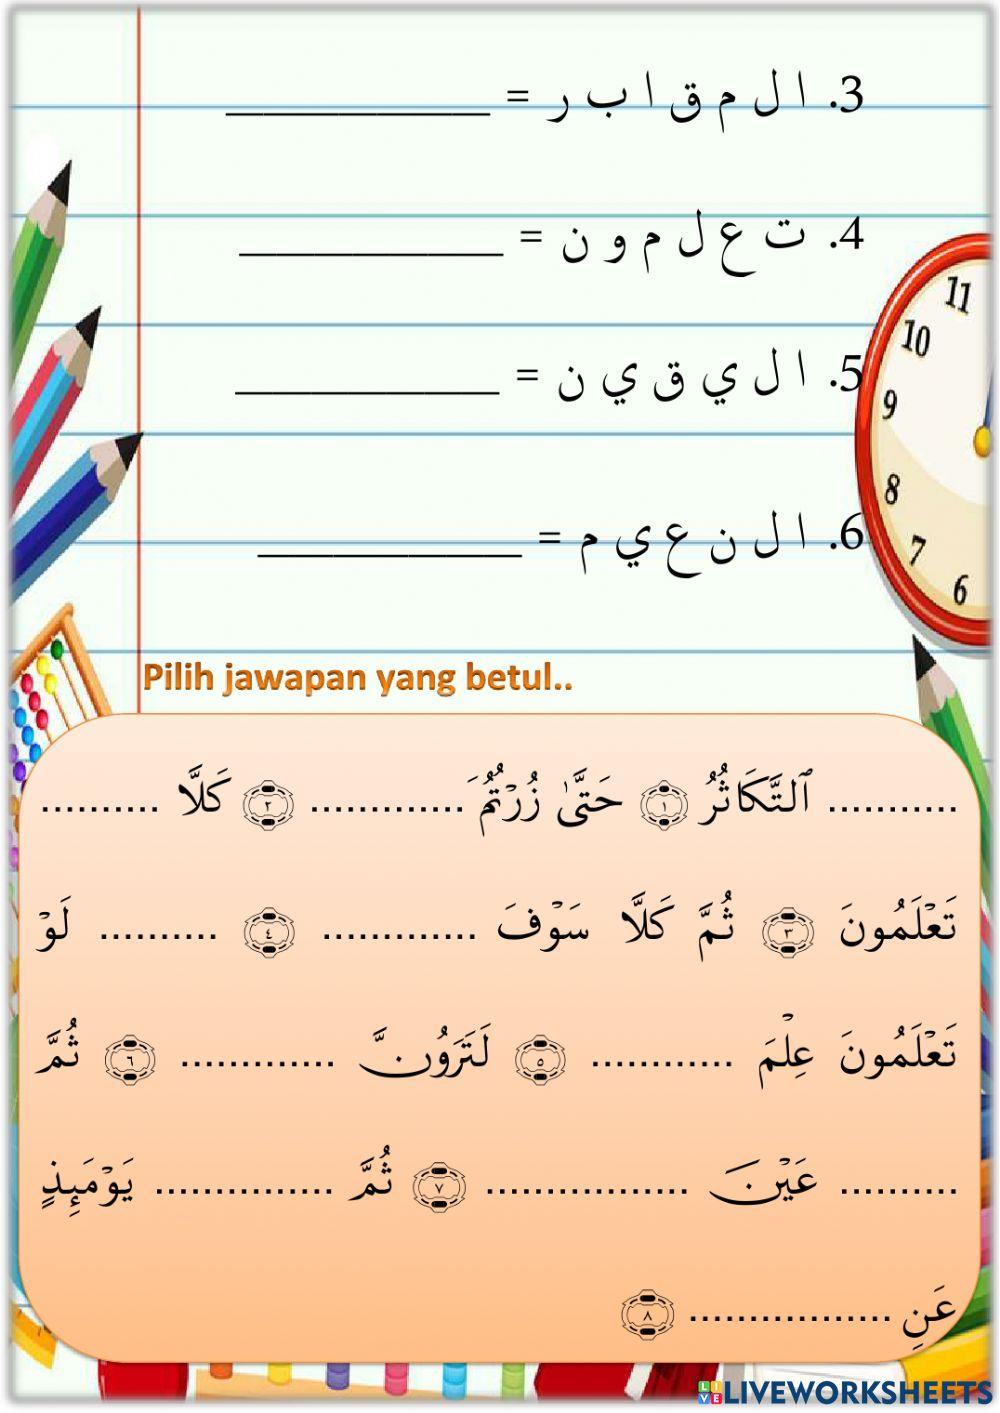 3. ا ل م ق ا ب ر = ____________
4. ت ع ل م و ن = ____________
5. ا ل ي ق ي ن = ____________
6. ا ل ن ع ي م = ____________
11
10
9
8
7
6
Pilih jawapan yang betul..
........... ٱلتَّكَاثُرُ ١ حَتَّىٰ زُرۡتُمُ َ............. ٢ كَلَّا ..........
تَعۡلَمُونَ ٣ ثُمَّ كَلَّا سَوۡفَ ............. ٤ .......... لَوۡ
تَعۡلَمُونَ عِلۡمَ ............ ٥ لَتَرَوُنَّ ............. ٦ ثُمَّ
.......... عَيۡنَ ................. ٧ ثُمَّ ............... يَوۡمَئِذٍ
عَنِ ................. ٨
LIVEWORKSHEETS